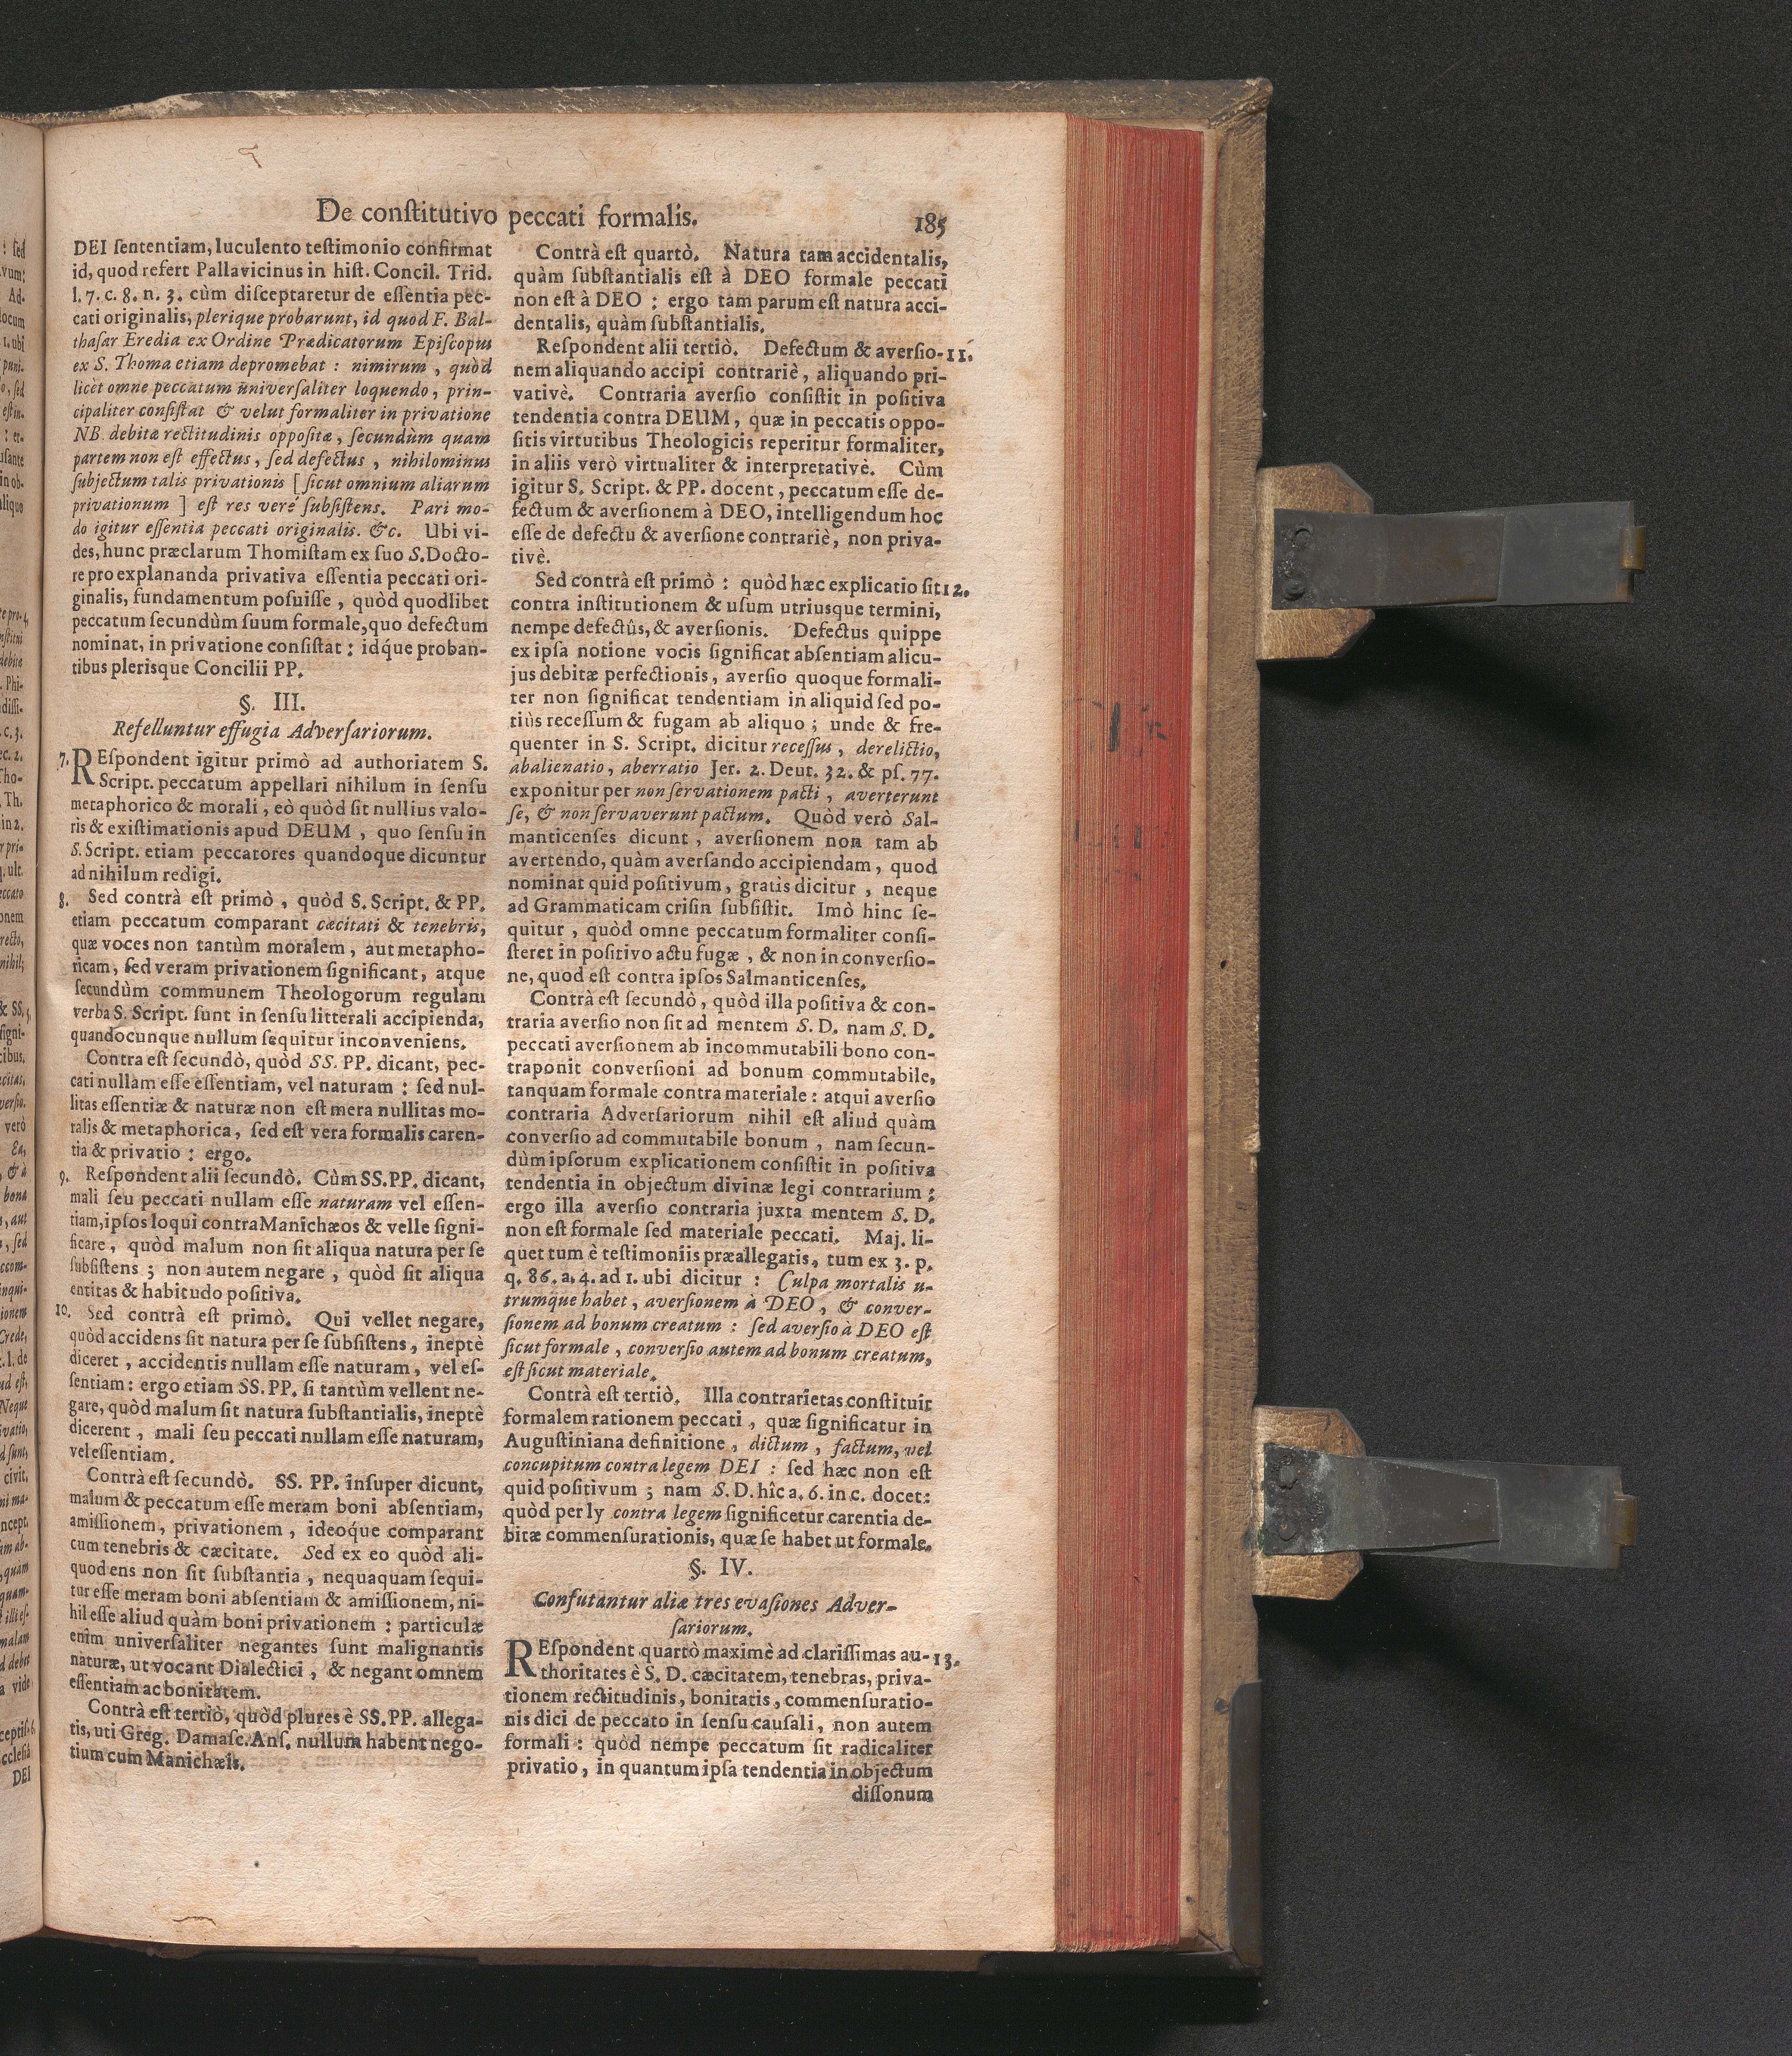 De conſtitutivo peccati formalis.
185
DEI ſententiam, luculento teſtimonio confirmat
id, quod refert Pallavicinus in hiſt. Concil. Trid.
l. 7. c. 8. n. 3. cùm diſceptaretur de eſſentia pec-
cati originalis, plerique probarunt, id quod F. Bal-
thaſar Eredia ex Ordine Prædicatorum Epiſcopus
ex S. Thoma etiam depromebat : nimirum , quòd
licèt omne peccatum univerſaliter loquendo , prin-
cipaliter conſiſtat & velut formaliter in privatione
NB. debitæ rectitudinis oppoſitæ , ſecundùm quam
partem non eſt effectus , ſed defectus , nihilominus
ſubjectum talis privationis [ ſicut omnium aliarum
privationum ] eſt res verè ſubſiſtens. Pari mo-
do igitur eſſentia peccati originalis. &c. Ubi vi-
des, hunc præclarum Thomiſtam ex ſuo S. Docto-
re pro explananda privativa eſſentia peccati ori-
ginalis, fundamentum poſuiſſe , quòd quodlibet
peccatum ſecundùm ſuum formale, quo defectum
nominat, in privatione conſiſtat : idq́ue proban-
tibus plerisque Concilii PP.
§. III.
Refelluntur effugia Adverſariorum.
7. REſpondent igitur primò ad authoriatem S.
Script. peccatum appellari nihilum in ſenſu
metaphorico & morali , eò quòd ſit nullius valo-
ris & exiſtimationis apud DEUM , quo ſenſu in
S. Script. etiam peccatores quandoque dicuntur
ad nihilum redigi.
8. Sed contrà eſt primò , quòd S. Script. & PP.
etiam peccatum comparant cæcitati & tenebris,
quæ voces non tantùm moralem , aut metapho-
ricam, ſed veram privationem ſignificant, atque
ſecundùm communem Theologorum regulam
verba S. Script. ſunt in ſenſu litterali accipienda,
quandocunque nullum ſequitur inconveniens.
Contra eſt ſecundò, quòd SS. PP. dicant, pec-
cati nullam eſſe eſſentiam, vel naturam : ſed nul-
litas eſſentiæ & naturæ non eſt mera nullitas mo-
ralis & metaphorica, ſed eſt vera formalis caren-
tia & privatio : ergo.
9. Reſpondent alii ſecundò. Cùm SS. PP. dicant,
mali ſeu peccati nullam eſſe naturam vel eſſen-
tiam, ipſos loqui contra Manichæos & velle ſigni-
ficare , quòd malum non ſit aliqua natura per ſe
ſubſiſtens ; non autem negare , quòd ſit aliqua
entitas & habitudo poſitiva.
10. Sed contrà eſt primò. Qui vellet negare,
quòd accidens ſit natura per ſe ſubſiſtens, ineptè
diceret , accidentis nullam eſſe naturam, vel eſ-
ſentiam : ergo etiam SS. PP. ſi tantùm vellent ne-
gare, quòd malum ſit natura ſubſtantialis, ineptè
dicerent , mali ſeu peccati nullam eſſe naturam,
vel eſſentiam.
Contrà eſt ſecundò. SS. PP. inſuper dicunt,
malum & peccatum eſſe meram boni abſentiam,
amiſſionem, privationem , ideoq́ue comparant
cum tenebris & cæcitate. Sed ex eo quòd ali-
quod ens non ſit ſubſtantia , nequaquam ſequi-
tur eſſe meram boni abſentiam & amiſſionem, ni-
hil eſſe aliud quàm boni privationem : particulæ
enim univerſaliter negantes ſunt malignantis
naturæ, ut vocant Dialectici , & negant omnem
eſſentiam ac bonitatem.
Contrà eſt tertiò, quòd plures è SS. PP. allega-
tis, uti Greg. Damaſc. Anſ. nullum habent nego-
tium cum Manichæis.
Contrà eſt quartò. Natura tam accidentalis,
quàm ſubſtantialis eſt à DEO formale peccati
non eſt à DEO : ergo tam parum eſt natura acci-
dentalis, quàm ſubſtantialis.
Reſpondent alii tertiò. Defectum & averſio- 11.
nem aliquando accipi contrariè , aliquando pri-
vativè. Contraria averſio conſiſtit in poſitiva
tendentia contra DEUM , quæ in peccatis oppo-
ſitis virtutibus Theologicis reperitur formaliter,
in aliis verò virtualiter & interpretativè. Cùm
igitur S. Script. & PP. docent , peccatum eſſe de-
fectum & averſionem à DEO, intelligendum hoc
eſſe de defectu & averſione contrariè, non priva-
tivè.
Sed contrà eſt primò : quòd hæc explicatio ſit 12.
contra inſtitutionem & uſum utriusque termini,
nempe defectûs, & averſionis. Defectus quippe
ex ipſa notione vocis ſignificat abſentiam alicu-
jus debitæ perfectionis, averſio quoque formali-
ter non ſignificat tendentiam in aliquid ſed po-
tiùs receſſum & fugam ab aliquo ; unde & fre-
quenter in S. Script. dicitur receſſus , derelictio,
abalienatio, aberratio Jer. 2. Deut. 32. & pſ. 77.
exponitur per non ſervationem pacti , averterunt
ſe, & non ſervaverunt pactum. Quòd verò Sal-
manticenſes dicunt , averſionem non tam ab
avertendo, quàm averſando accipiendam, quod
nominat quid poſitivum, gratis dicitur , neque
ad Grammaticam criſin ſubſiſtit. Imò hinc ſe-
quitur , quòd omne peccatum formaliter conſi-
ſteret in poſitivo actu fugæ , & non in converſio-
ne, quod eſt contra ipſos Salmanticenſes.
Contrà eſt ſecundò, quòd illa poſitiva & con-
traria averſio non ſit ad mentem S. D. nam S. D.
peccati averſionem ab incommutabili bono con-
traponit converſioni ad bonum commutabile,
tanquam formale contra materiale : atqui averſio
contraria Adverſariorum nihil eſt aliud quàm
converſio ad commutabile bonum , nam ſecun-
dùm ipſorum explicationem conſiſtit in poſitiva
tendentia in objectum divinæ legi contrarium :
ergo illa averſio contraria juxta mentem S. D.
non eſt formale ſed materiale peccati. Maj. li-
quet tum è teſtimoniis præallegatis, tum ex 3. p.
q. 86. a. 4. ad 1. ubi dicitur : Culpa mortalis u-
trumque habet , averſionem à DEO , & conver-
ſionem ad bonum creatum : ſed averſio à DEO eſt
ſicut formale , converſio autem ad bonum creatum,
eſt ſicut materiale.
Contrà eſt tertiò. Illa contrarietas conſtituit
formalem rationem peccati , quæ ſignificatur in
Auguſtiniana definitione , dictum , factum, vel
concupitum contra legem DEI : ſed hæc non eſt
quid poſitivum ; nam S. D. hîc a. 6. in c. docet:
quòd per ly contra legem ſignificetur carentia de-
bitæ commenſurationis, quæ ſe habet ut formale.
§. IV.
Confutantur aliæ tres evaſiones Adver-
ſariorum.
REſpondent quartò maximè ad clariſſimas au- 13.
thoritates è S. D. cæcitatem, tenebras, priva-
tionem rectitudinis, bonitatis, commenſuratio-
nis dici de peccato in ſenſu cauſali, non autem
formali : quòd nempe peccatum ſit radicaliter
privatio, in quantum ipſa tendentia in objectum
diſſonum